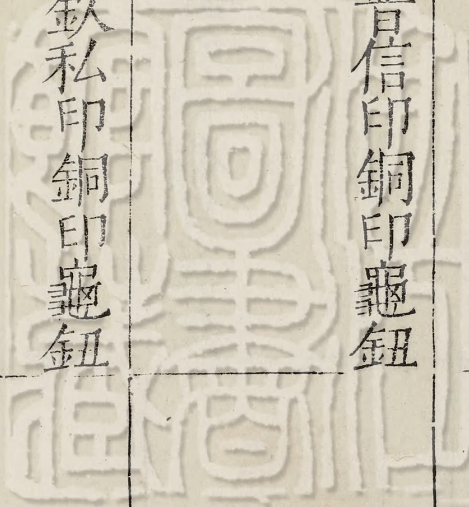 信印銅印龜鈕
私印銅印龜鈕